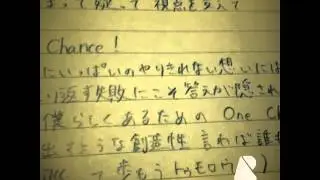 って疑って 視点を変えて
Chance!
にいっぱいのやりきれない想いには
り返す失敗にこそ答えが隠され
僕らしくあるための One C
出すような創造性 言わば誰も
て 歩もう トゥモロウ)